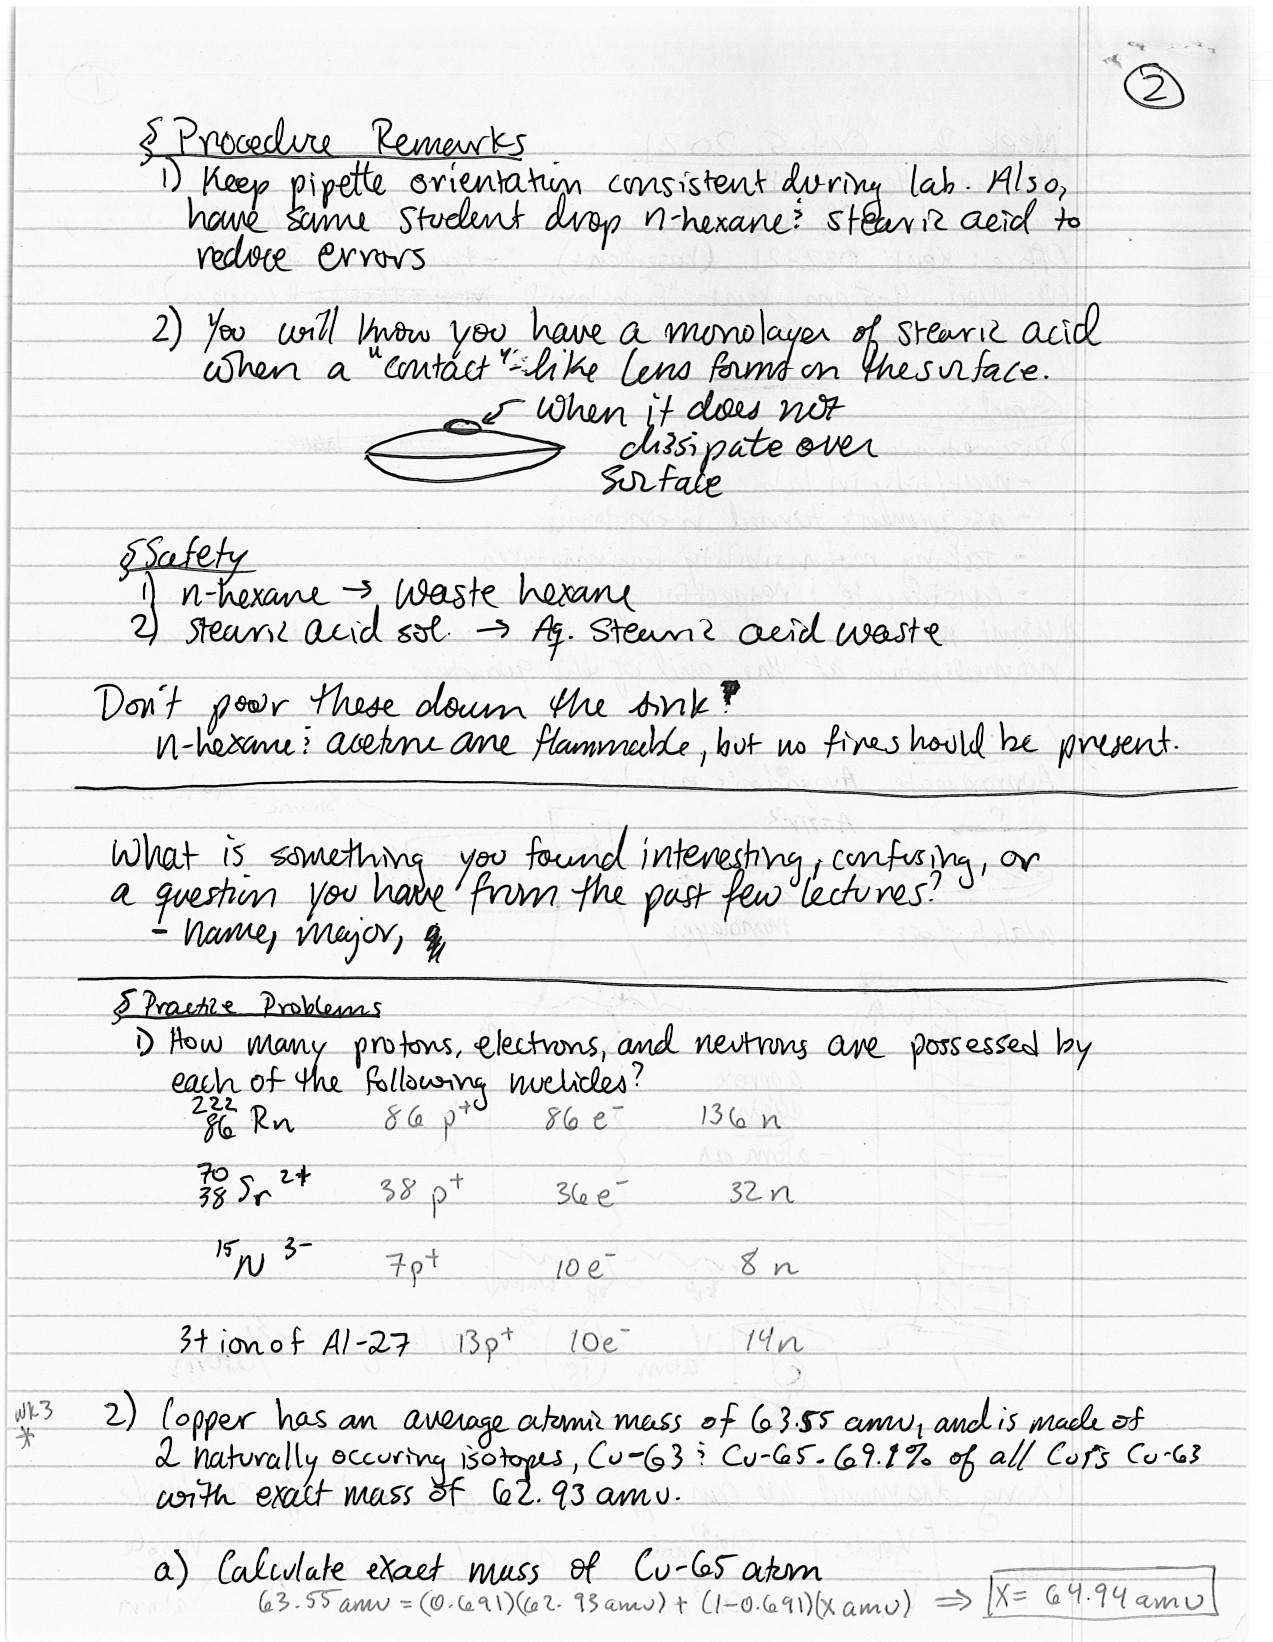 2
§ Procedure Remarks
1) Keep pipette orientation consistent during lab. Also,
have same student drop n-hexane & stearic acid to
reduce errors
2) You will know you have a monolayer of stearic acid
when a "contact"-like lens forms on the surface.
When it does not
dissipate over
surface
§ Safety
1) n-hexane → waste hexane
2) stearic acid sol. → Aq. Stearic acid waste
Don't pour these down the sink!
n-hexane & acetone are flammable, but no fire should be present.
What is something you found interesting, confusing, or
a question you have from the past few lectures?
- name, major,
§ Practice Problems
1) How many protons, electrons, and neutrons are possessed by
each of the following nuclides?
²²²₈₆Rn 86 p⁺ 86 e⁻ 136 n
⁷⁰₃₈Sr²⁺ 38 p⁺ 36 e⁻ 32 n
¹⁵N³⁻ 7p⁺ 10e⁻ 8 n
3+ ion of Al-27 13p⁺ 10e⁻ 14n
wk3 * 2) Copper has an average atomic mass of 63.55 amu, and is made of
2 naturally occuring isotopes, Cu-63 & Cu-65. 69.1% of all Cu is Cu-63
with exact mass of 62.93 amu.
a) Calculate exact mass of Cu-65 atom
63.55 amu = (0.691)(62.93 amu) + (1-0.691)(x amu) ⇒ x = 64.94 amu